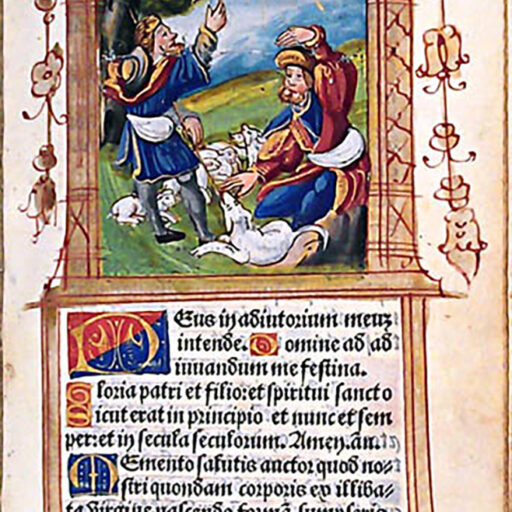 DEus in adiutorium meuz
intende. Domine ad ad
iuuandum me festina.
Gloria patri et filio: et spiritui sancto
Sicut erat in principio et nunc et sem
per: et in secula seculorum. Amen. an.
MEmento salutis auctor quod no-
stri quondam corporis ex illiba-
ta virgine nascendo formã sumpseris